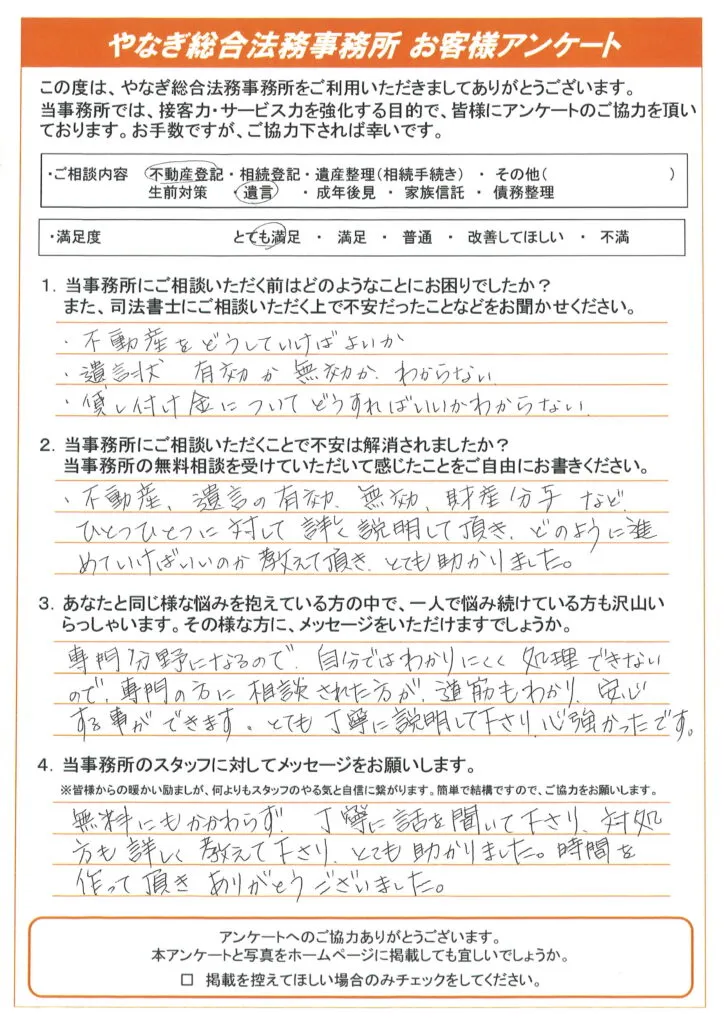 やなぎ総合法務事務所 お客様アンケート
この度は、やなぎ総合法務事務所をご利用いただきましてありがとうございます。
当事務所では、接客力・サービス力を強化する目的で、皆様にアンケートのご協力を頂いております。お手数ですが、ご協力下されば幸いです。
・ご相談内容 不動産登記・相続登記・遺産整理(相続手続き) ・ その他( )
生前対策 ・遺言 ・成年後見 ・ 家族信託 ・ 債務整理
・満足度 とても満足 ・ 満足 ・ 普通 ・ 改善してほしい ・ 不満
1. 当事務所にご相談いただく前はどのようなことにお困りでしたか？
また、司法書士にご相談いただく上で不安だったことなどをお聞かせください。
・不動産をどうしていけばよいか
・遺言状 有効か無効か、わからない
・貸し付け金についてどうすればいいかわからない
2. 当事務所にご相談いただくことで不安は解消されましたか？
当事務所の無料相談を受けていただいて感じたことをご自由にお書きください。
・不動産、遺言の有効、無効、財産分与など、
ひとつひとつに対して詳しく説明して頂き、どのように進
めていけばいいのか教えて頂き、とても助かりました。
3. あなたと同じ様な悩みを抱えている方の中で、一人で悩み続けている方も沢山いらっしゃいます。その様な方に、メッセージをいただけますでしょうか。
専門分野になるので、自分ではわかりにくく処理できない
ので、専門の方に相談された方が、道筋もわかり、安心
する事ができます。とても丁寧に説明して下さり、心強かったです。
4. 当事務所のスタッフに対してメッセージをお願いします。
※皆様からの暖かい励ましが、何よりもスタッフのやる気と自信に繋がります。簡単で結構ですので、ご協力をお願いします。
無料にもかかわらず、丁寧に話を聞いて下さり、対処
方も詳しく教えて下さり、とても助かりました。時間を
作って頂きありがとうございました。
アンケートへのご協力ありがとうございます。
本アンケートと写真をホームページに掲載しても宜しいでしょうか。
□ 掲載を控えてほしい場合のみチェックをしてください。